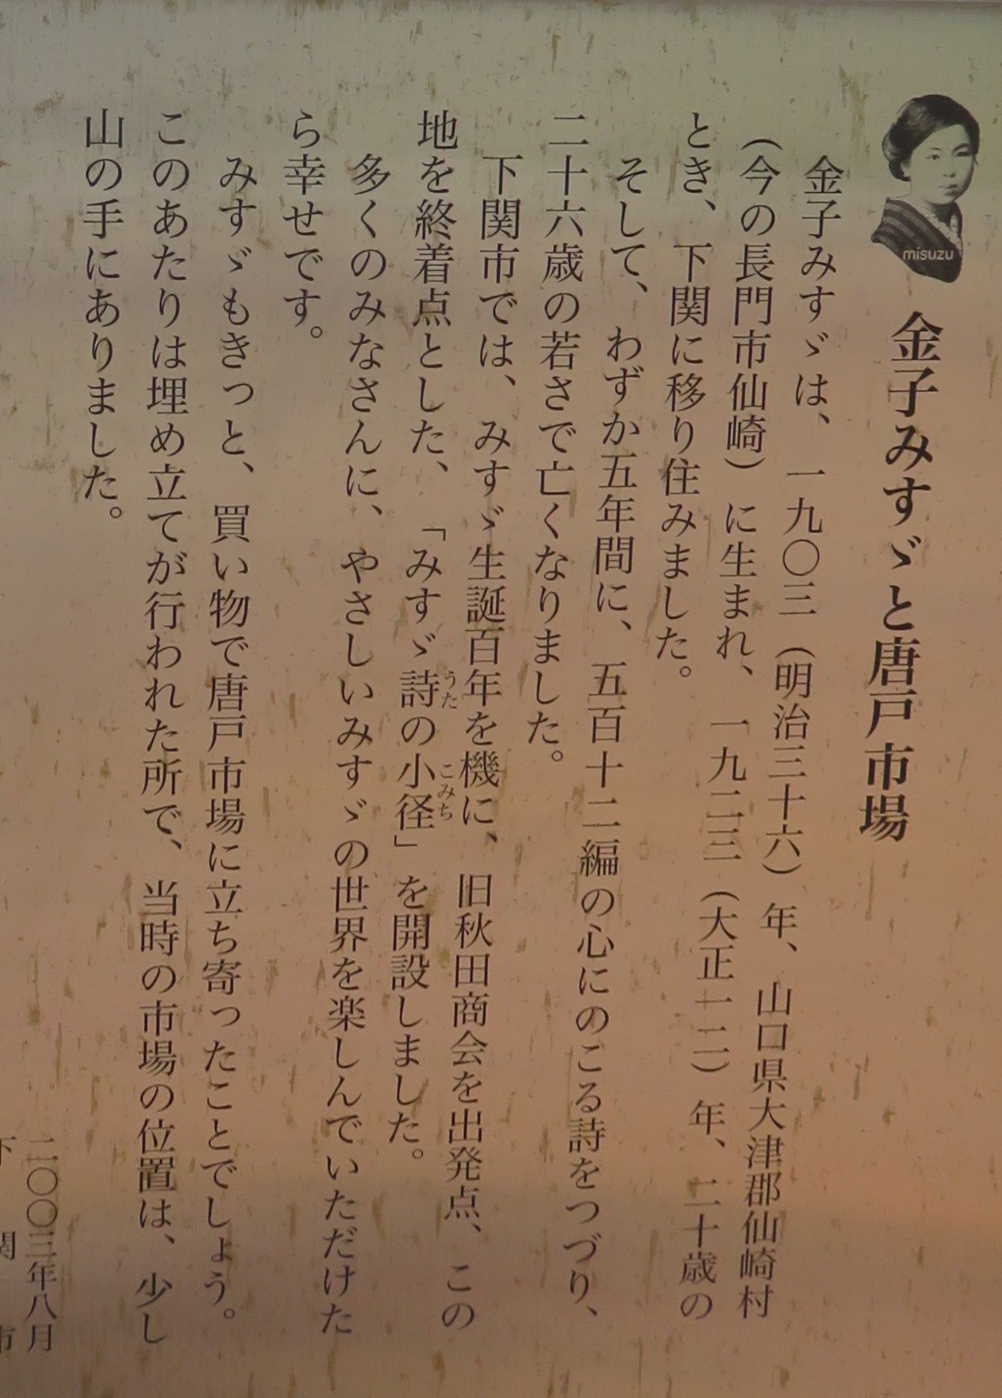 misuzu
金子みすゞと唐戸市場
金子みすゞは、一九〇三（明治三十六）年、山口県大津郡仙崎村
（今の長門市仙崎）に生まれ、一九二三（大正一二）年、二十歳の
とき、下関に移り住みました。
そして、わずか五年間に、五百十二編の心にのこる詩をつづり、
二十六歳の若さで亡くなりました。
下関市では、みすゞ生誕百年を機に、旧秋田商会を出発点、この
地を終着点とした、「みすゞ詩の小径」を開設しました。
うた
こみち
多くのみなさんに、やさしいみすゞの世界を楽しんでいただけた
ら幸せです。
みすゞもきっと、買い物で唐戸市場に立ち寄ったことでしょう。
このあたりは埋め立てが行われた所で、当時の市場の位置は、少し
山の手にありました。
二〇〇三年八月
下関市